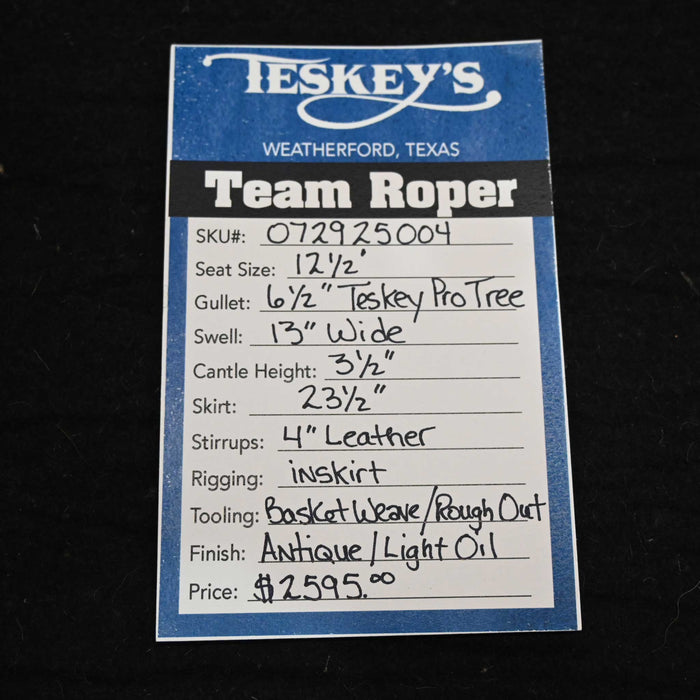 TESKEY'S
WEATHERFORD, TEXAS
Team Roper
SKU#: 072925004
Seat Size: 12 1/2'
Gullet: 6 1/2" Teskey Pro Tree
Swell: 13" Wide
Cantle Height: 3 1/2"
Skirt: 23 1/2"
Stirrups: 4" Leather
Rigging: inskirt
Tooling: Basket Weave/Rough Out
Finish: Antique/Light Oil
Price: $2595.00